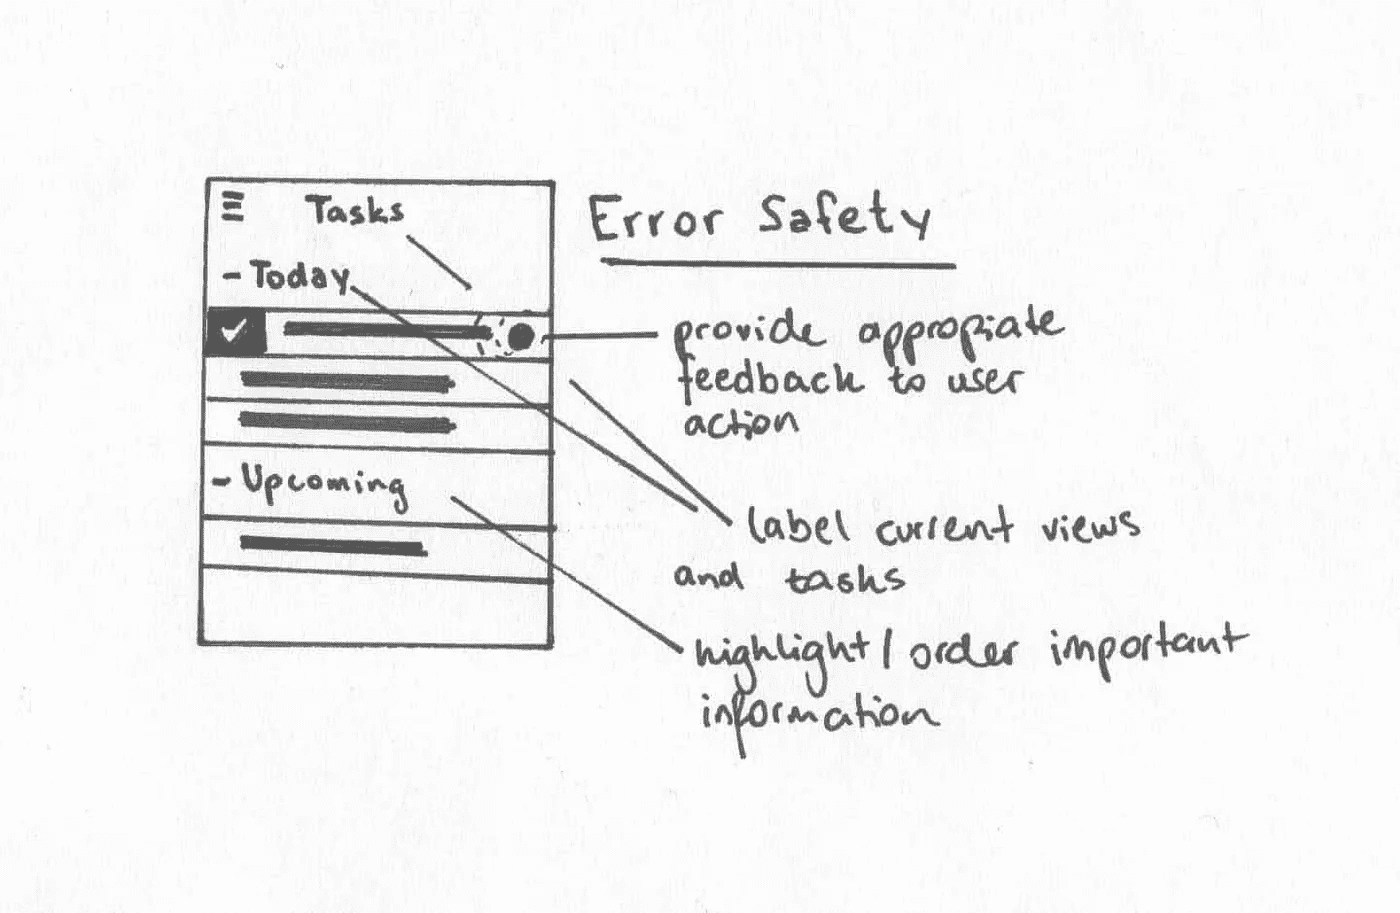 Tasks
- Today
- Upcoming
Error Safety
provide appropiate
feedback to user
action
label current views
and tasks
highlight / order important
information